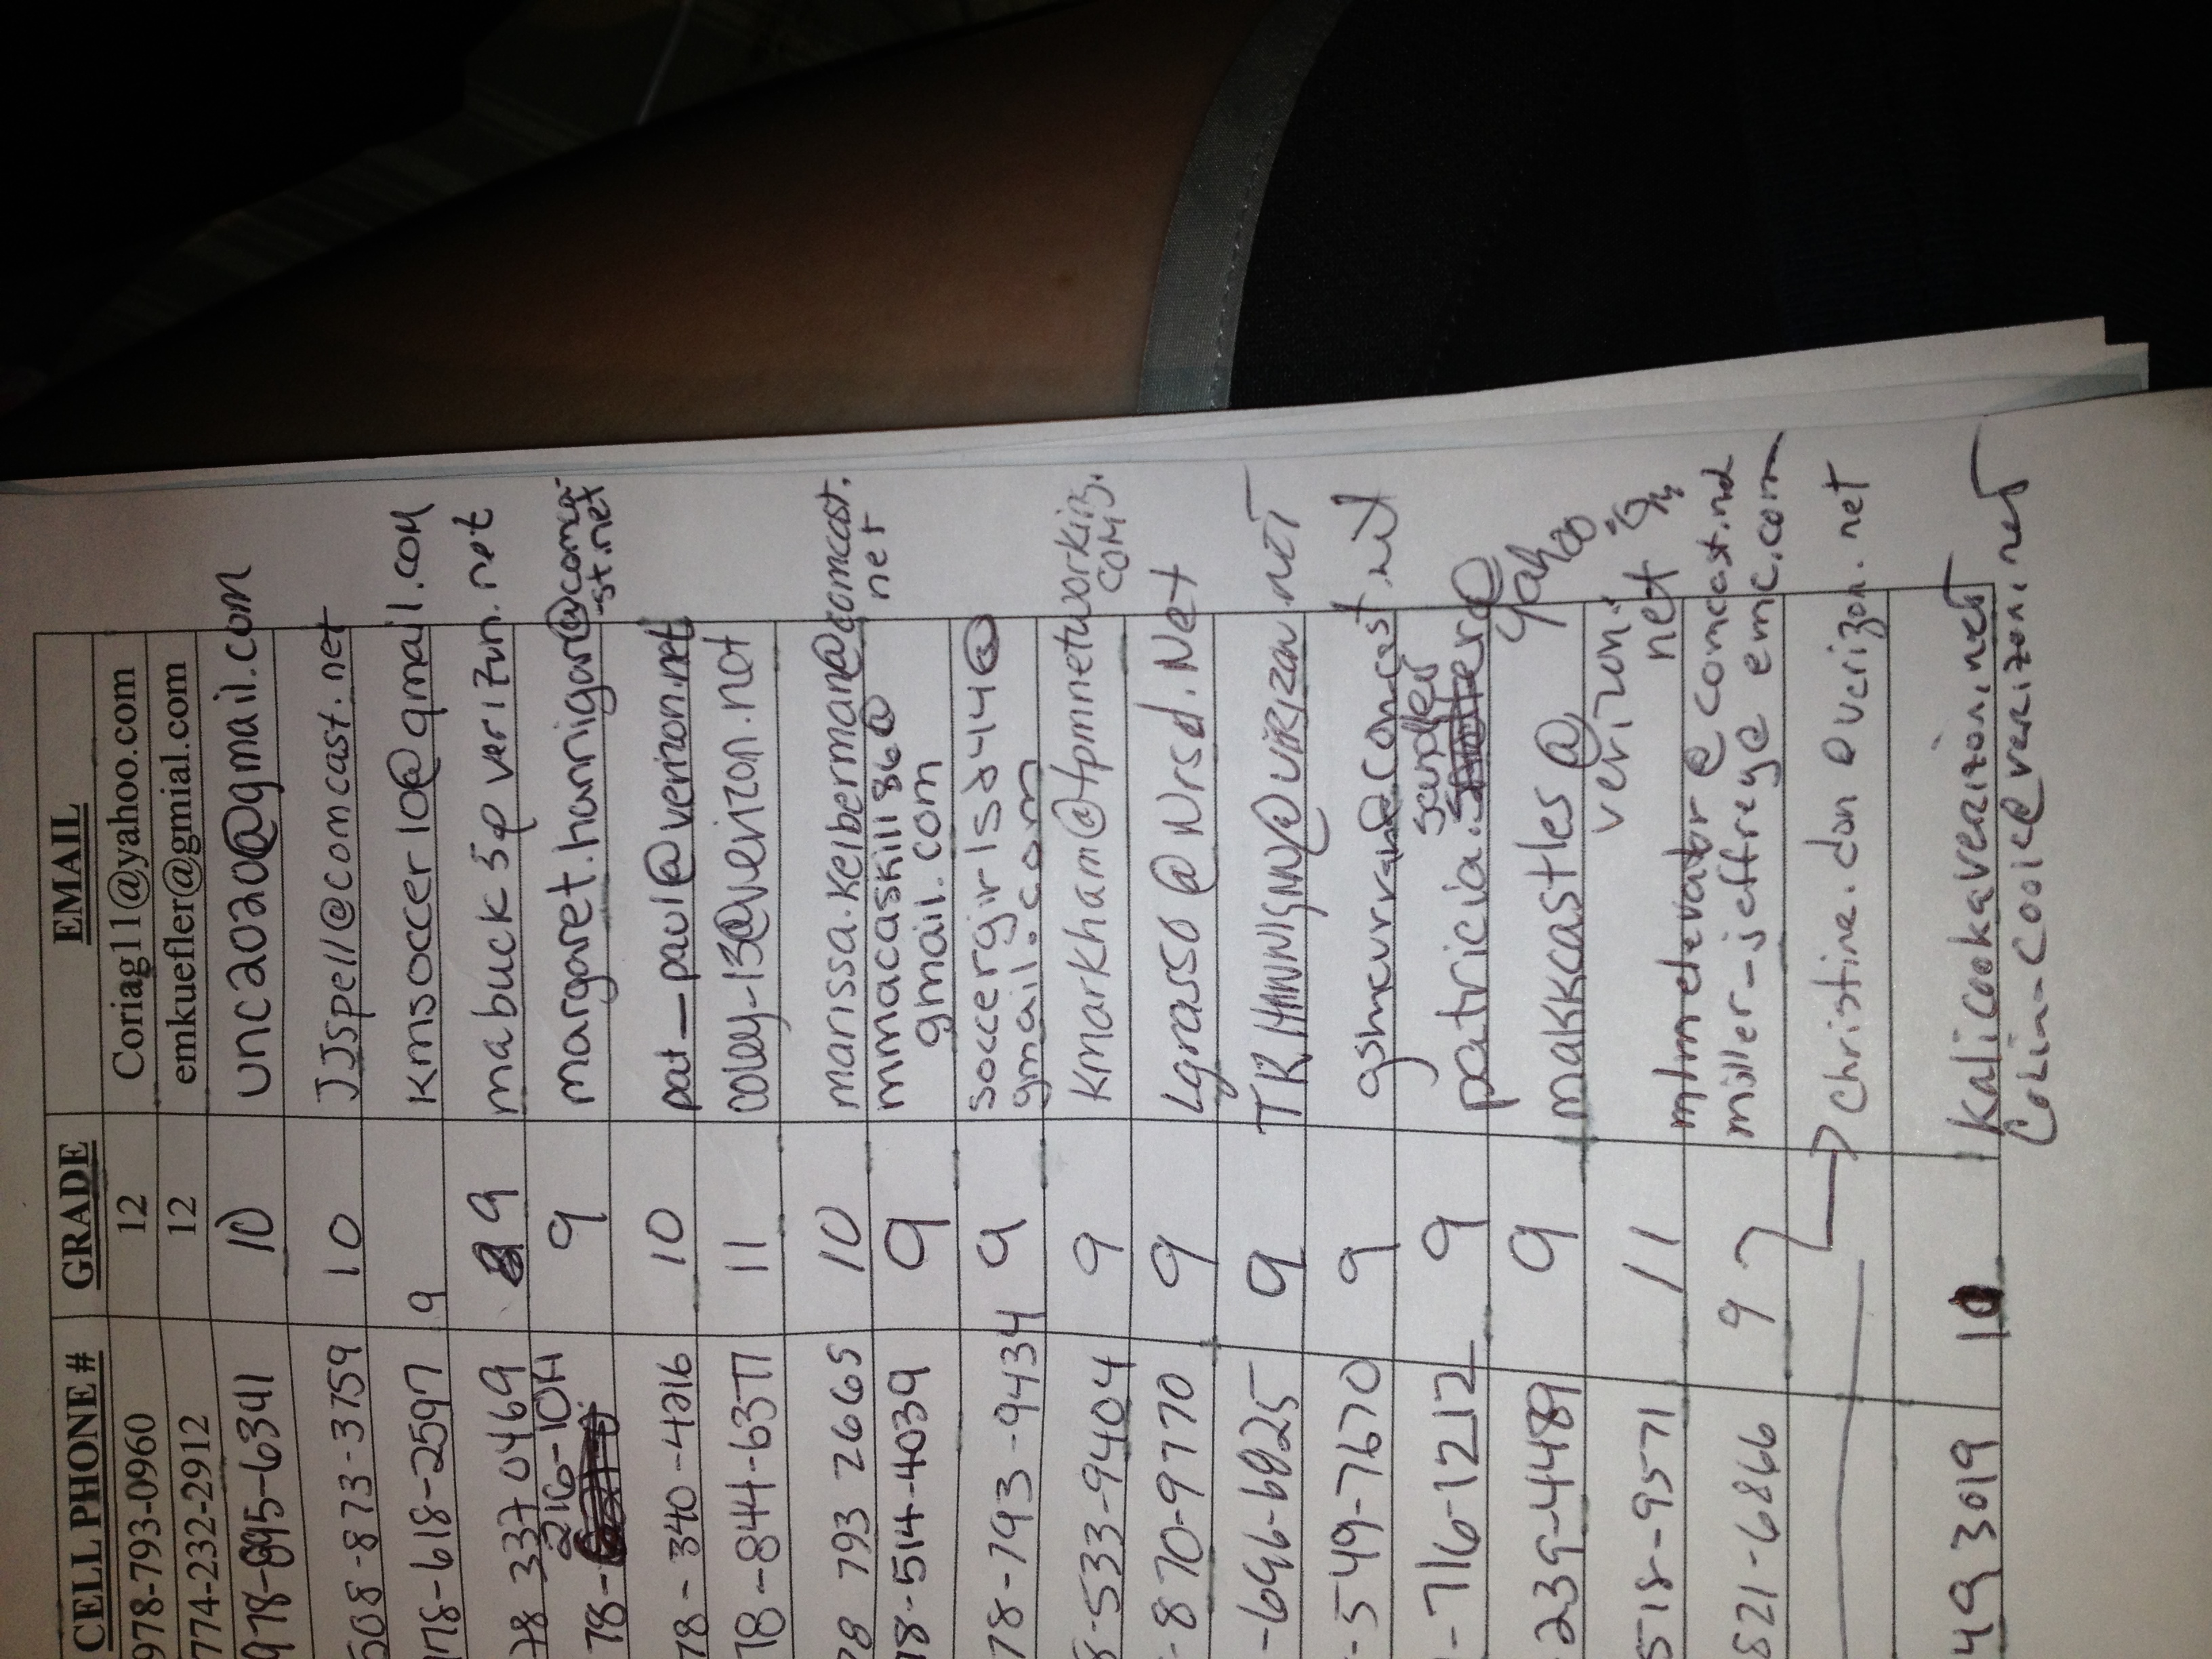 CELL PHONE # GRADE EMAIL
978-793-0960 12 Coriag11@yahoo.com
774-232-2912 12 emkuefler@gmial.com
978-895-6341 10 unc2020@gmail.com
508-873-3759 10 JJspell@comcast.net
978-618-2597 9 kmsoccer10@gmail.com
78 337 0469 9 mabuck5@verizon.net
216-1014
78- 9 margaret.hannigan@comca-
st.net
78-340-4216 10 pat_paul@verizon.net
78-844-6377 11 colby-13@verizon.net
78 793 2665 10 marissa.keiberman@comcast.
net
78-514-4039 9 mmacaskill86@
gmail.com
78-793-9434 9 soccergirls244@
gmail.com
8-533-9404 9 kmarkham@fpmnetworking.
com
-870-9770 9 Lgrasso@Nrsd.Net
-696-6925 9 TRHANNIGAN@VERIZON.NET
-549-7670 9 gshmcurran@comcast.net
-716-1212 9 patricia.scandler@
yahoo
239-4489 9 makkcastles@
verizon.
net
518-9571 11 @comcast.net
821-6866 9 miller_jeffrey@emc.com
christine.dan@verizon.net
493019 10 Kalicook@verizon.net
Colin-cook@verizon.net